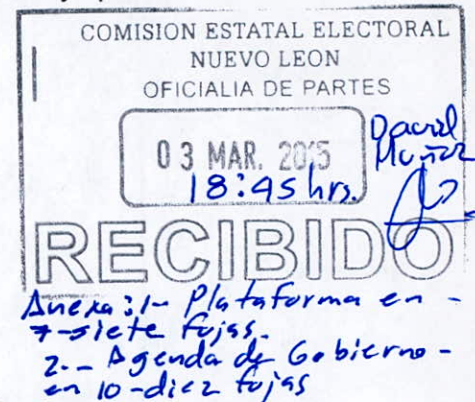 COMISION ESTATAL ELECTORAL
NUEVO LEON
OFICIALIA DE PARTES
03 MAR. 2015
18:45 hrs.
David
Muñoz
RECIBIDO
Anexa: 1- Plataforma en -
7-siete fojas.
2.- Agenda de Gobierno -
en 10-diez fojas